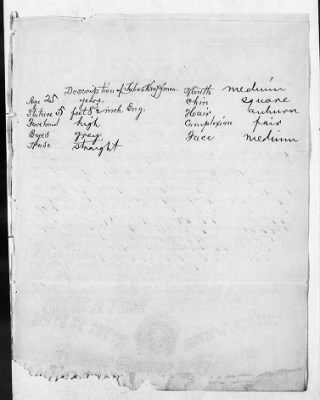 Description of Julius Kauffman Mouth medium
Age 25 years. Chin square
Stature 5 feet 8 ½ inch. Eng. Hair auburn
Forehead high Complexion fair
Eyes grey Face medium
Nose straight